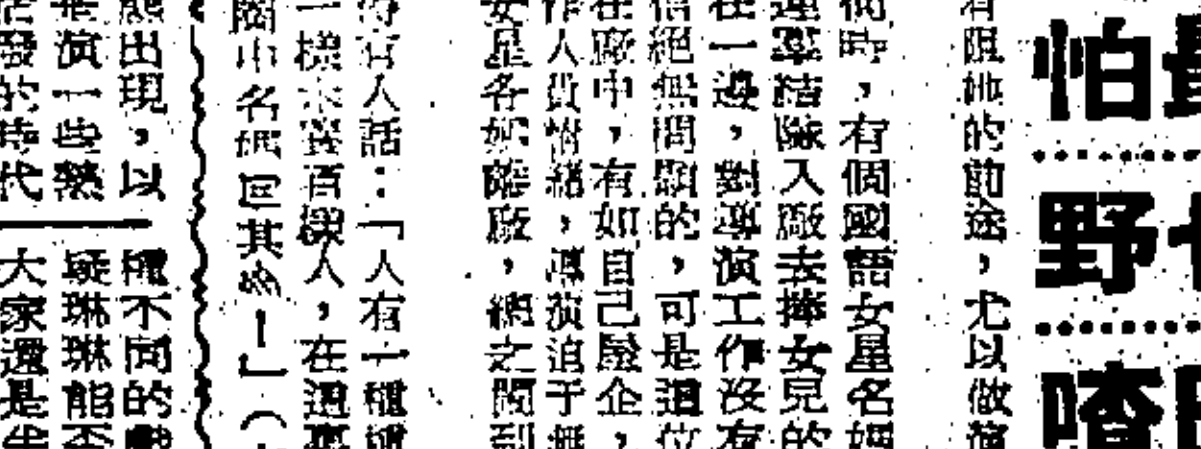 怕野喳
阻她的前途,尤以做
時,有個國語女星名媽
結隊入廠去捧女兒的
在一邊,對導演工作沒有
絕無問題的,可是這位
在廠中,有如自己屋企,
作人員情緒,導演迫于無
女星各如離廠,總之鬧到
有人話:「人有一種
一樣米養百樣人,在這裏
圈中名媽叵其多!」(
態出現,以
演一些熱
發的時代
種不同的戲
疑琳琳能否
大家還是